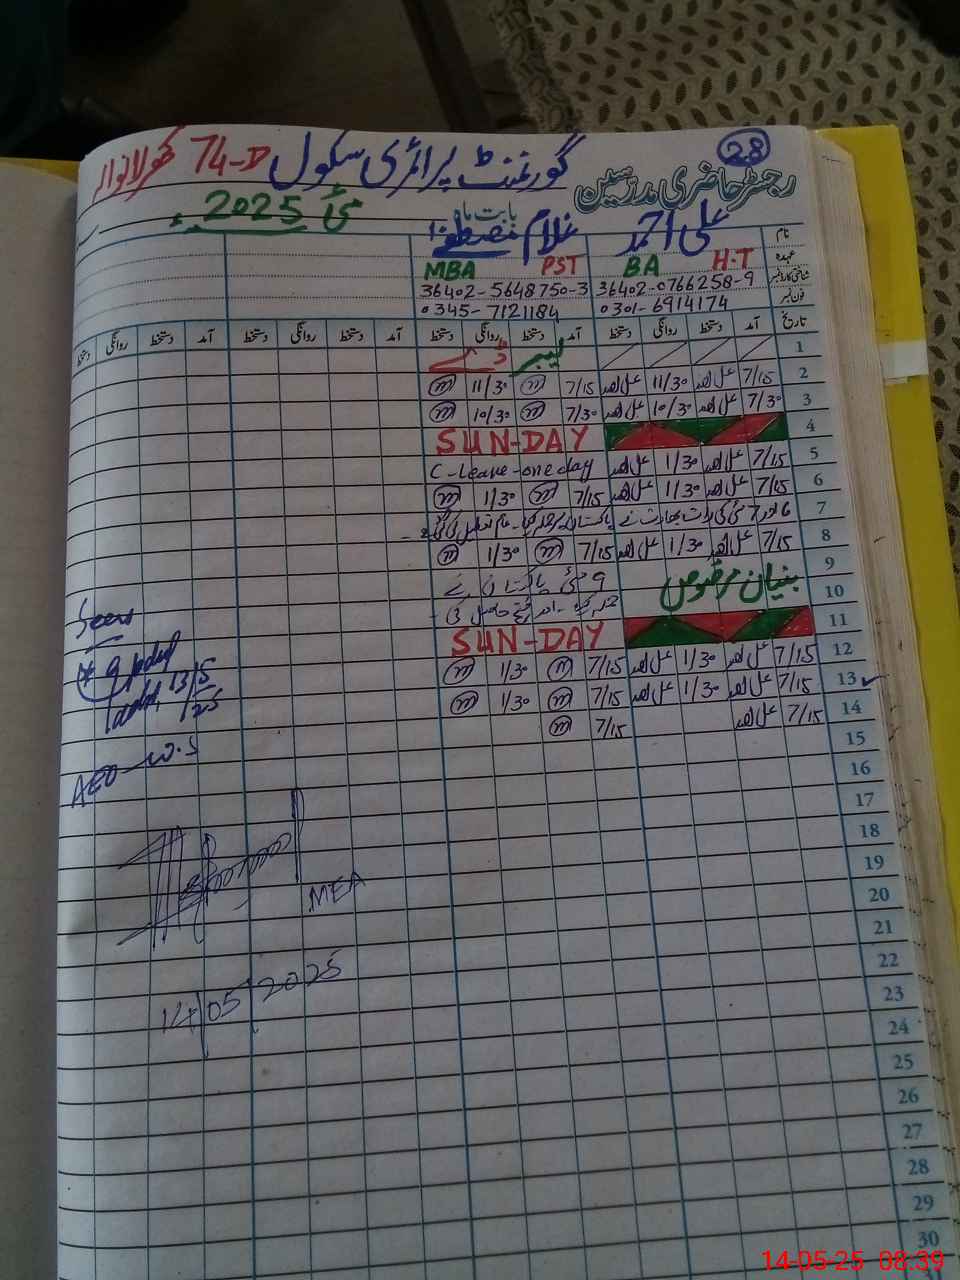 28
گورنمنٹ پرائمری سکول 74-D
رجسٹر حاضری مدرسین
بابت ماہ مئی 2025ء
نام علی احمد غلام مصطفیٰ
عہدہ H.T BA PST MBA
شناختی کارڈ نمبر 36402-0766258-9 36402-5648750-3
فون نمبر 0301-6914174 0345-7121184
تاریخ آمد دستخط روانگی دستخط آمد دستخط روانگی دستخط آمد دستخط روانگی دستخط آمد دستخط روانگی دستخط
1 لیبر ڈے
2 7/15 علی احمد 11/30 علی احمد 7/15 m 11/30 m
3 7/30 علی احمد 10/30 علی احمد 7/30 m 10/30 m
4 SUN-DAY
5 7/15 علی احمد 1/30 علی احمد C-leave-one day
6 7/15 علی احمد 1/30 علی احمد 7/15 m 1/30 m
7 6 اور 7 مئی کی رات بھارت نے پاکستان پر حملہ کیا
8 7/15 علی احمد 1/30 علی احمد 7/15 m 1/30 m
9 بنیان مرصوص 9 مئی پاکستان نے
10 حملہ کیا اور فتح حاصل کی
11 SUN-DAY
12 7/15 علی احمد 1/30 علی احمد 7/15 m 1/30 m
13 7/15 علی احمد 1/30 علی احمد 7/15 m 1/30 m
14 7/15 علی احمد 7/15 m
15
16
17
18
19
20
21
22
23
24
25
26
27
28
29
30
Seen
13/5/25
AEO-W.S
MEA
14/05/2025
14-05-25 08:39